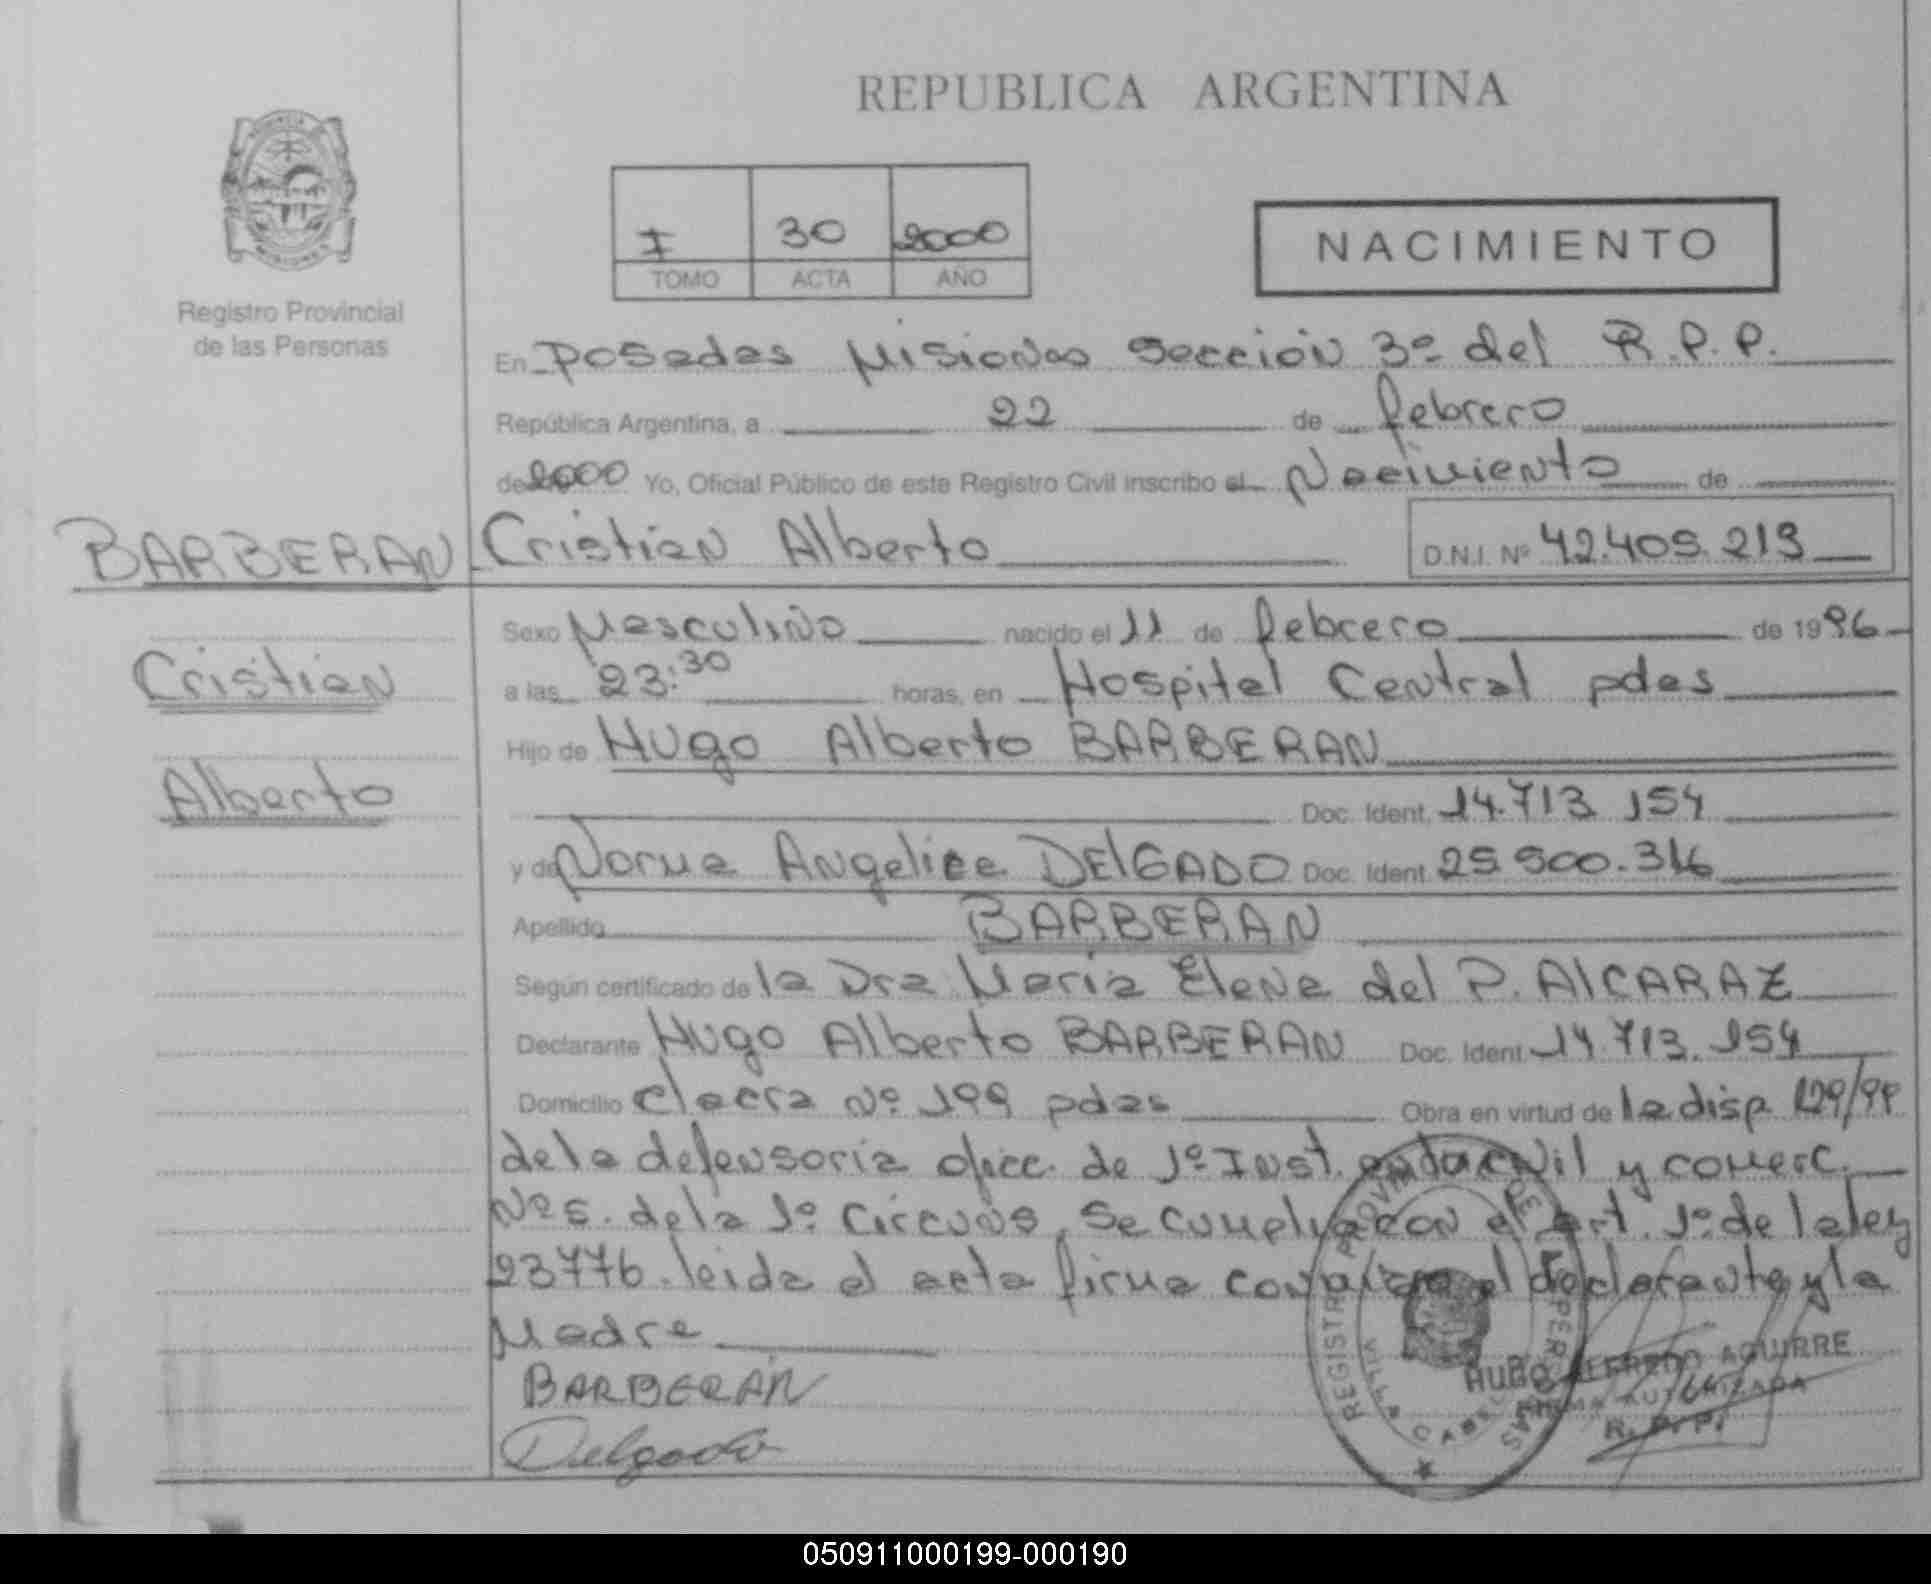 REPUBLICA ARGENTINA
PROVINCIA
MISIONES
Registro Provincial
de las Personas
I 30 2000
TOMO ACTA AÑO
NACIMIENTO
En Posadas Misiones Sección 3º del R.P.P.
República Argentina, a 22 de febrero
de 2000 Yo, Oficial Público de este Registro Civil inscribo el Nacimiento de
BARBERAN Cristian Alberto D.N.I. Nº 42.409.213
Cristian
Alberto
Sexo Masculino nacido el 11 de febrero de 1996
a las 23:30 horas, en Hospital Central pdas
Hijo de Hugo Alberto BARBERAN
Doc. Ident. 14.713.154
y de Norma Angelica DELGADO Doc. Ident. 25.900.316
Apellido BARBERAN
Según certificado de la Dra Maria Elena del P. AlCARAZ
Declarante Hugo Alberto BARBERAN Doc. Ident. 14.713.154
Domicilio chacra Nº 199 pdas Obra en virtud de la disp 129/99
de la defensoria ofic. de 1º Inst. en lo civil y comerc.
Nº5. de la 1º Circuns. Se cumple con el art. 1º de la ley
23776. leida el acta firma conmigo el declarante y la
Madre
BARBERAN
Delgado
REGISTRO PROVINCIAL DE LAS PERSONAS
VILLA CABELLO
HUGO ALFREDO AGUIRRE
FIRMA AUTORIZADA
R. P. P.
050911000199-000190